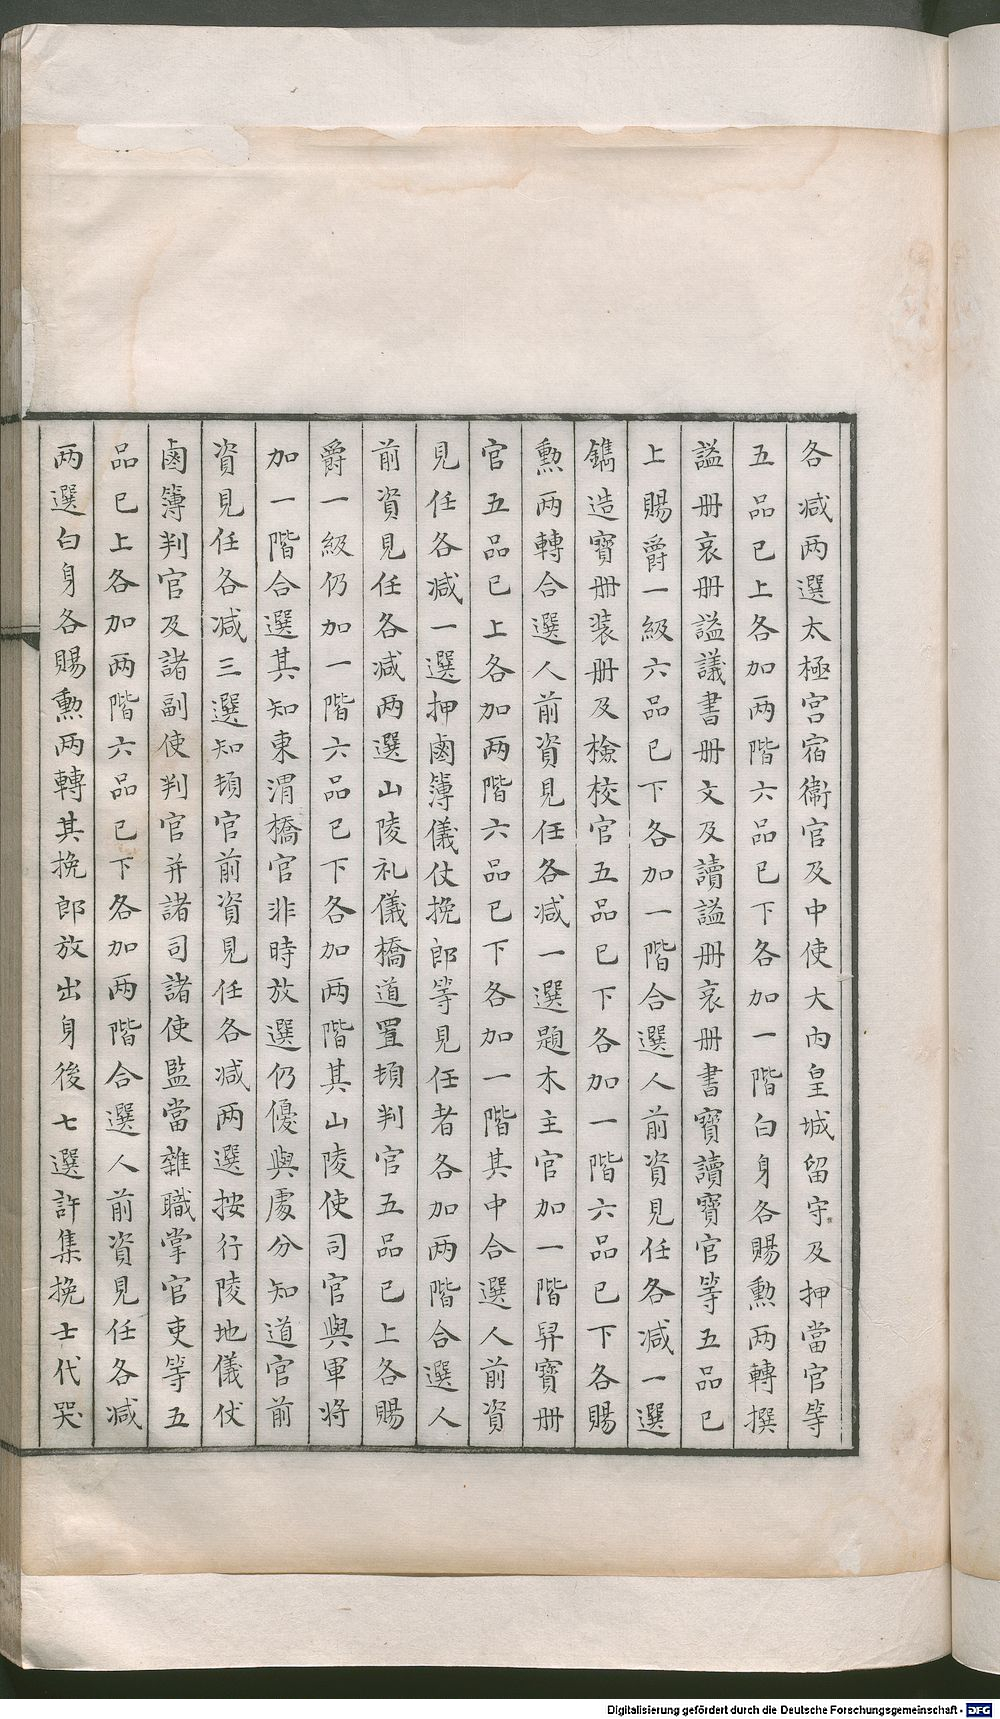 各减两選太極宮宿衞官及中使大內皇城留守及押當官等
五品已上各加两階六品已下各加一階白身各賜勲两轉撰
謚册哀册謚議書册文及讀謚册哀册書寶讀寶官等五品已
上賜爵一級六品已下各加一階合選人前資見任各减一選
鐫造寶册装册及檢校官五品已下各加一階六品已下各賜
勲两轉合選人前資見任各减一選題木主官加一階舁寶册
官五品已上各加两階六品已下各加一階其中合選人前資
見任各减一選押鹵簿儀仗挽郎等見任者各加两階合選人
前資見任各减两選山陵礼儀橋道置頓判官五品已上各賜
爵一級仍加一階六品已下各加两階其山陵使司官與軍将
加一階合選其知東渭橋官非時放選仍優與處分知道官前
資見任各减三選知頓官前資見任各减两選按行陵地儀仗
鹵簿判官及諸副使判官并諸司諸使監當雜職掌官吏等五
品已上各加两階六品已下各加两階合選人前資見任各减
两選白身各賜勲两轉其挽郎放出身後七選許集挽士代哭
Digitalisierung gefördert durch die Deutsche Forschungsgemeinschaft - DFG